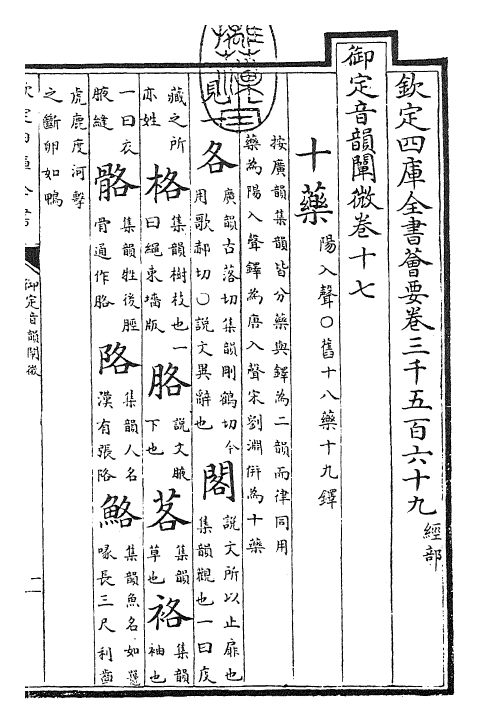 欽定四庫全書薈要卷三千五百六十九 經部
御定音韻闡微卷十七
十藥 陽入聲○舊十八藥十九鐸
按廣韻集韻皆分藥與鐸為二韻而律同用
藥為陽入聲鐸為唐入聲宋劉淵併為十藥
見一各 廣韻古落切集韻剛鶴切今用歌郝切○說文異辭也 閣 說文所以止扉也集韻觀也一曰庋
藏之所亦姓 格 集韻樹枝也一曰繩束墻版 胳 說文腋下也 茖 集韻草也 袼 集韻袖也
一曰衣腋縫 骼 集韻牲後脛骨通作胳 䧄 集韻人名漢有張䧄 鮥 集韻魚名如鼉喙長三尺利齒
虎鹿度河擊之斷卵如鴨
欽定四庫全書
御定音韻闡微
二